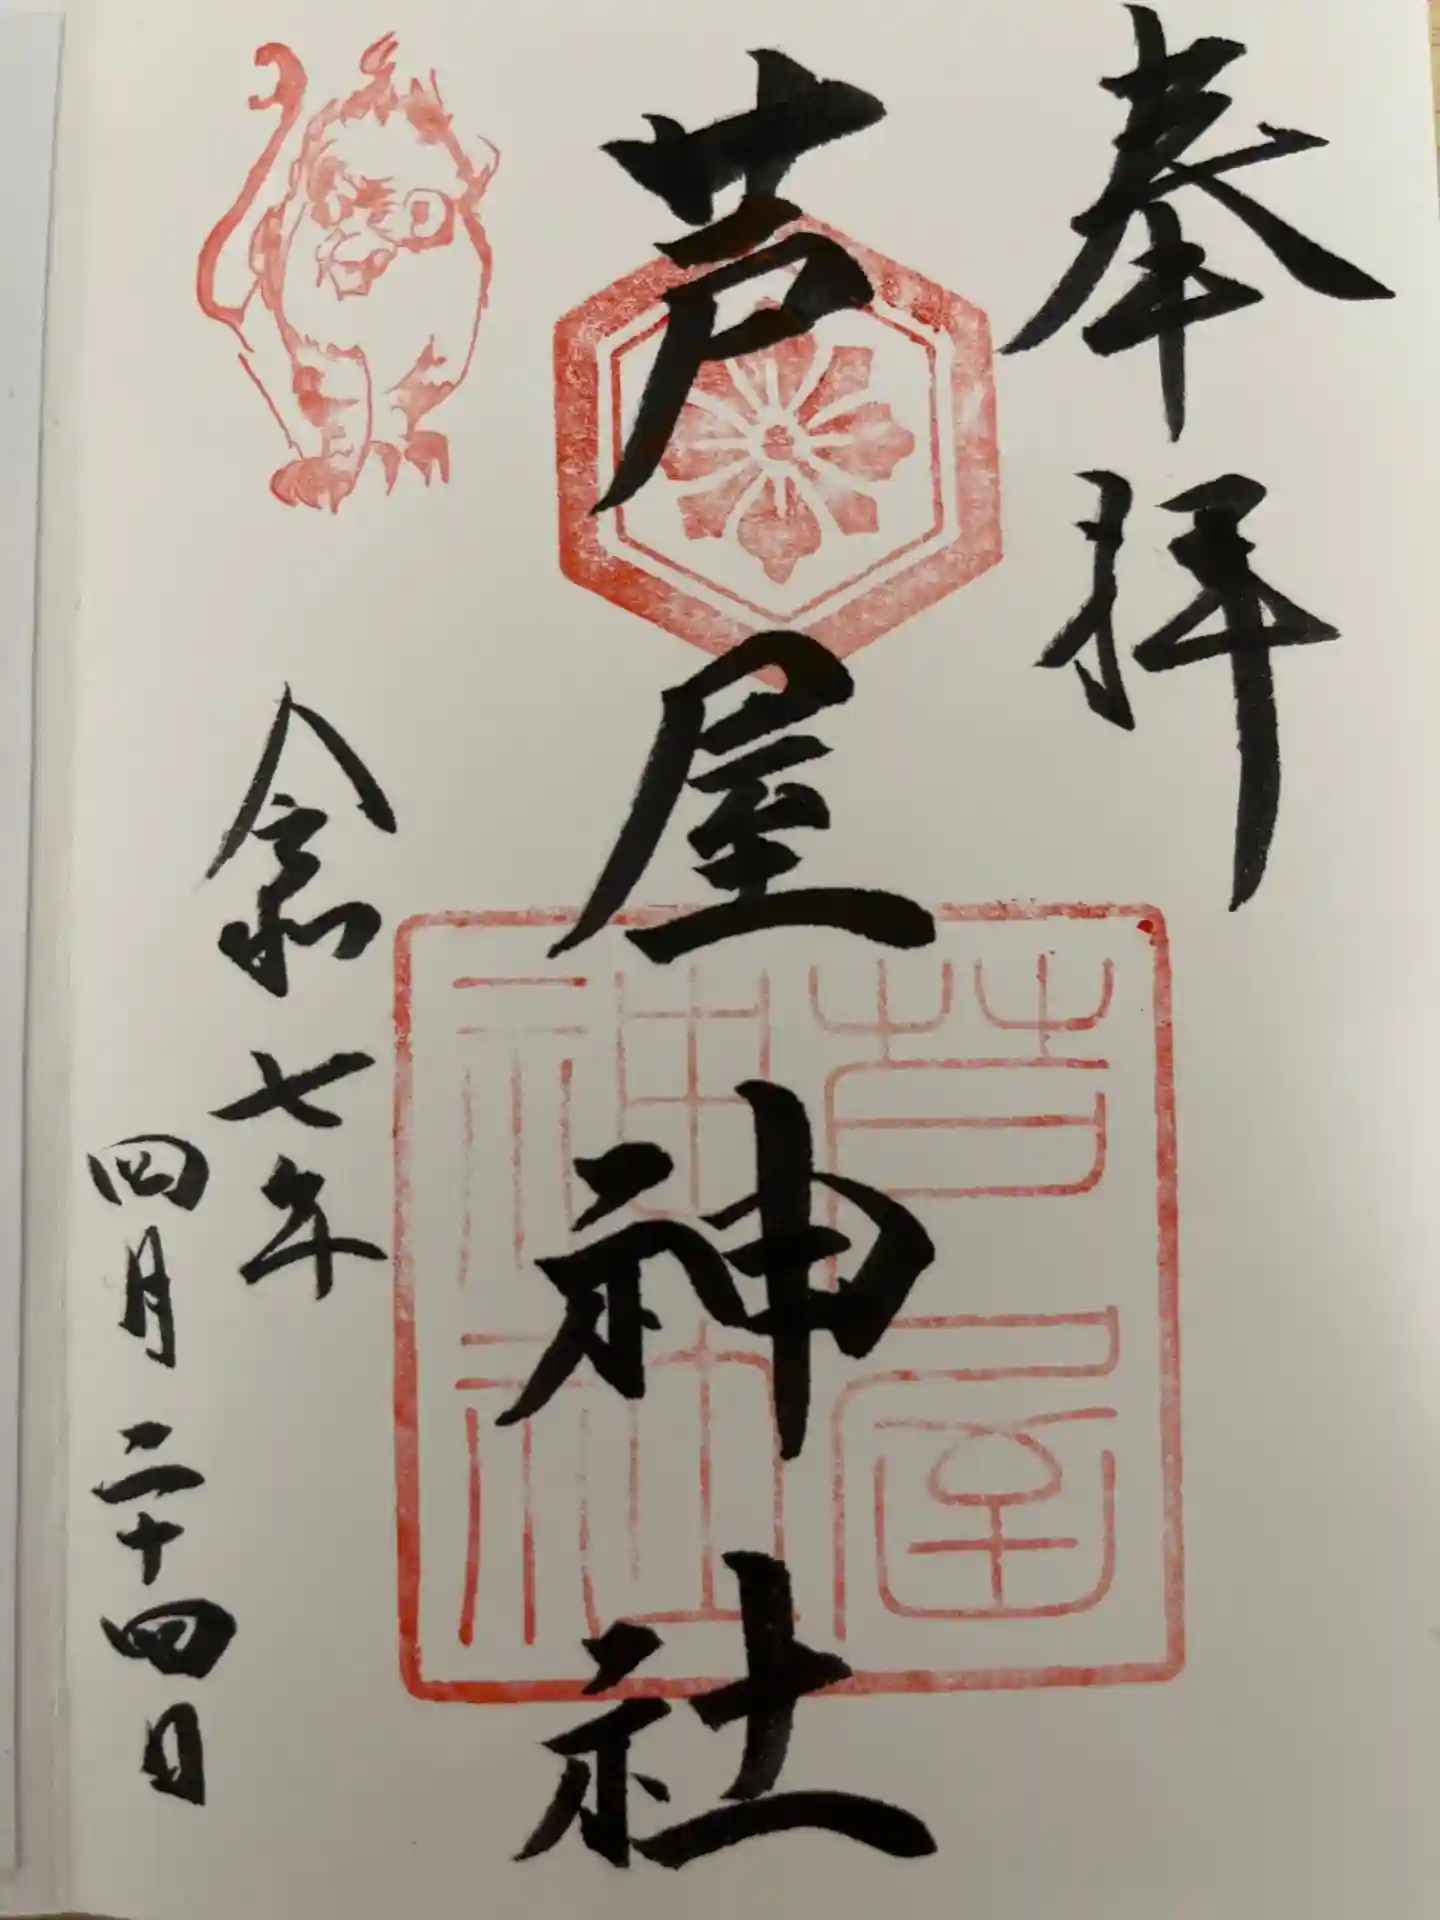 奉拝
芦屋神社
芦屋
神社
令和七年
四月二十四日